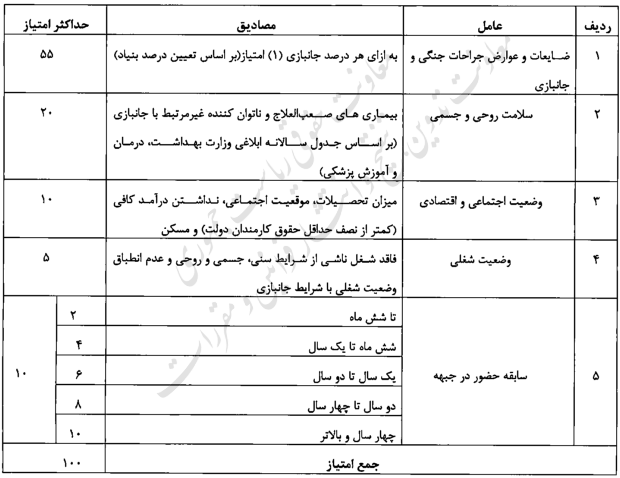 ردیف عامل مصادیق حداکثر امتیاز
۱ ضایعات و عوارض جراحات جنگی و به ازای هر درصد جانبازی (۱) امتیاز(بر اساس تعیین درصد بنیاد) ۵۵
جانبازی
۲ سلامت روحی و جسمی بیماری های صعب‌العلاج و ناتوان کننده غیرمرتبط با جانبازی ۲۰
(بر اساس جدول سالانه ابلاغی وزارت بهداشت، درمان
و آموزش پزشکی)
۳ وضعیت اجتماعی و اقتصادی میزان تحصیلات، موقعیت اجتماعی، نداشتن درآمد کافی ۱۰
(کمتر از نصف حداقل حقوق کارمندان دولت) و مسکن
۴ وضعیت شغلی فاقد شغل ناشی از شرایط سنی، جسمی و روحی و عدم انطباق ۵
وضعیت شغلی با شرایط جانبازی
۵ سابقه حضور در جبهه ۱۰
تا شش ماه ۲
شش ماه تا یک سال ۴
یک سال تا دو سال ۶
دو سال تا چهار سال ۸
چهار سال و بالاتر ۱۰
جمع امتیاز ۱۰۰
معاونت حقوقی ریاست جمهوری
معاونت تدوین، تنقیح و انتشار قوانین و مقررات